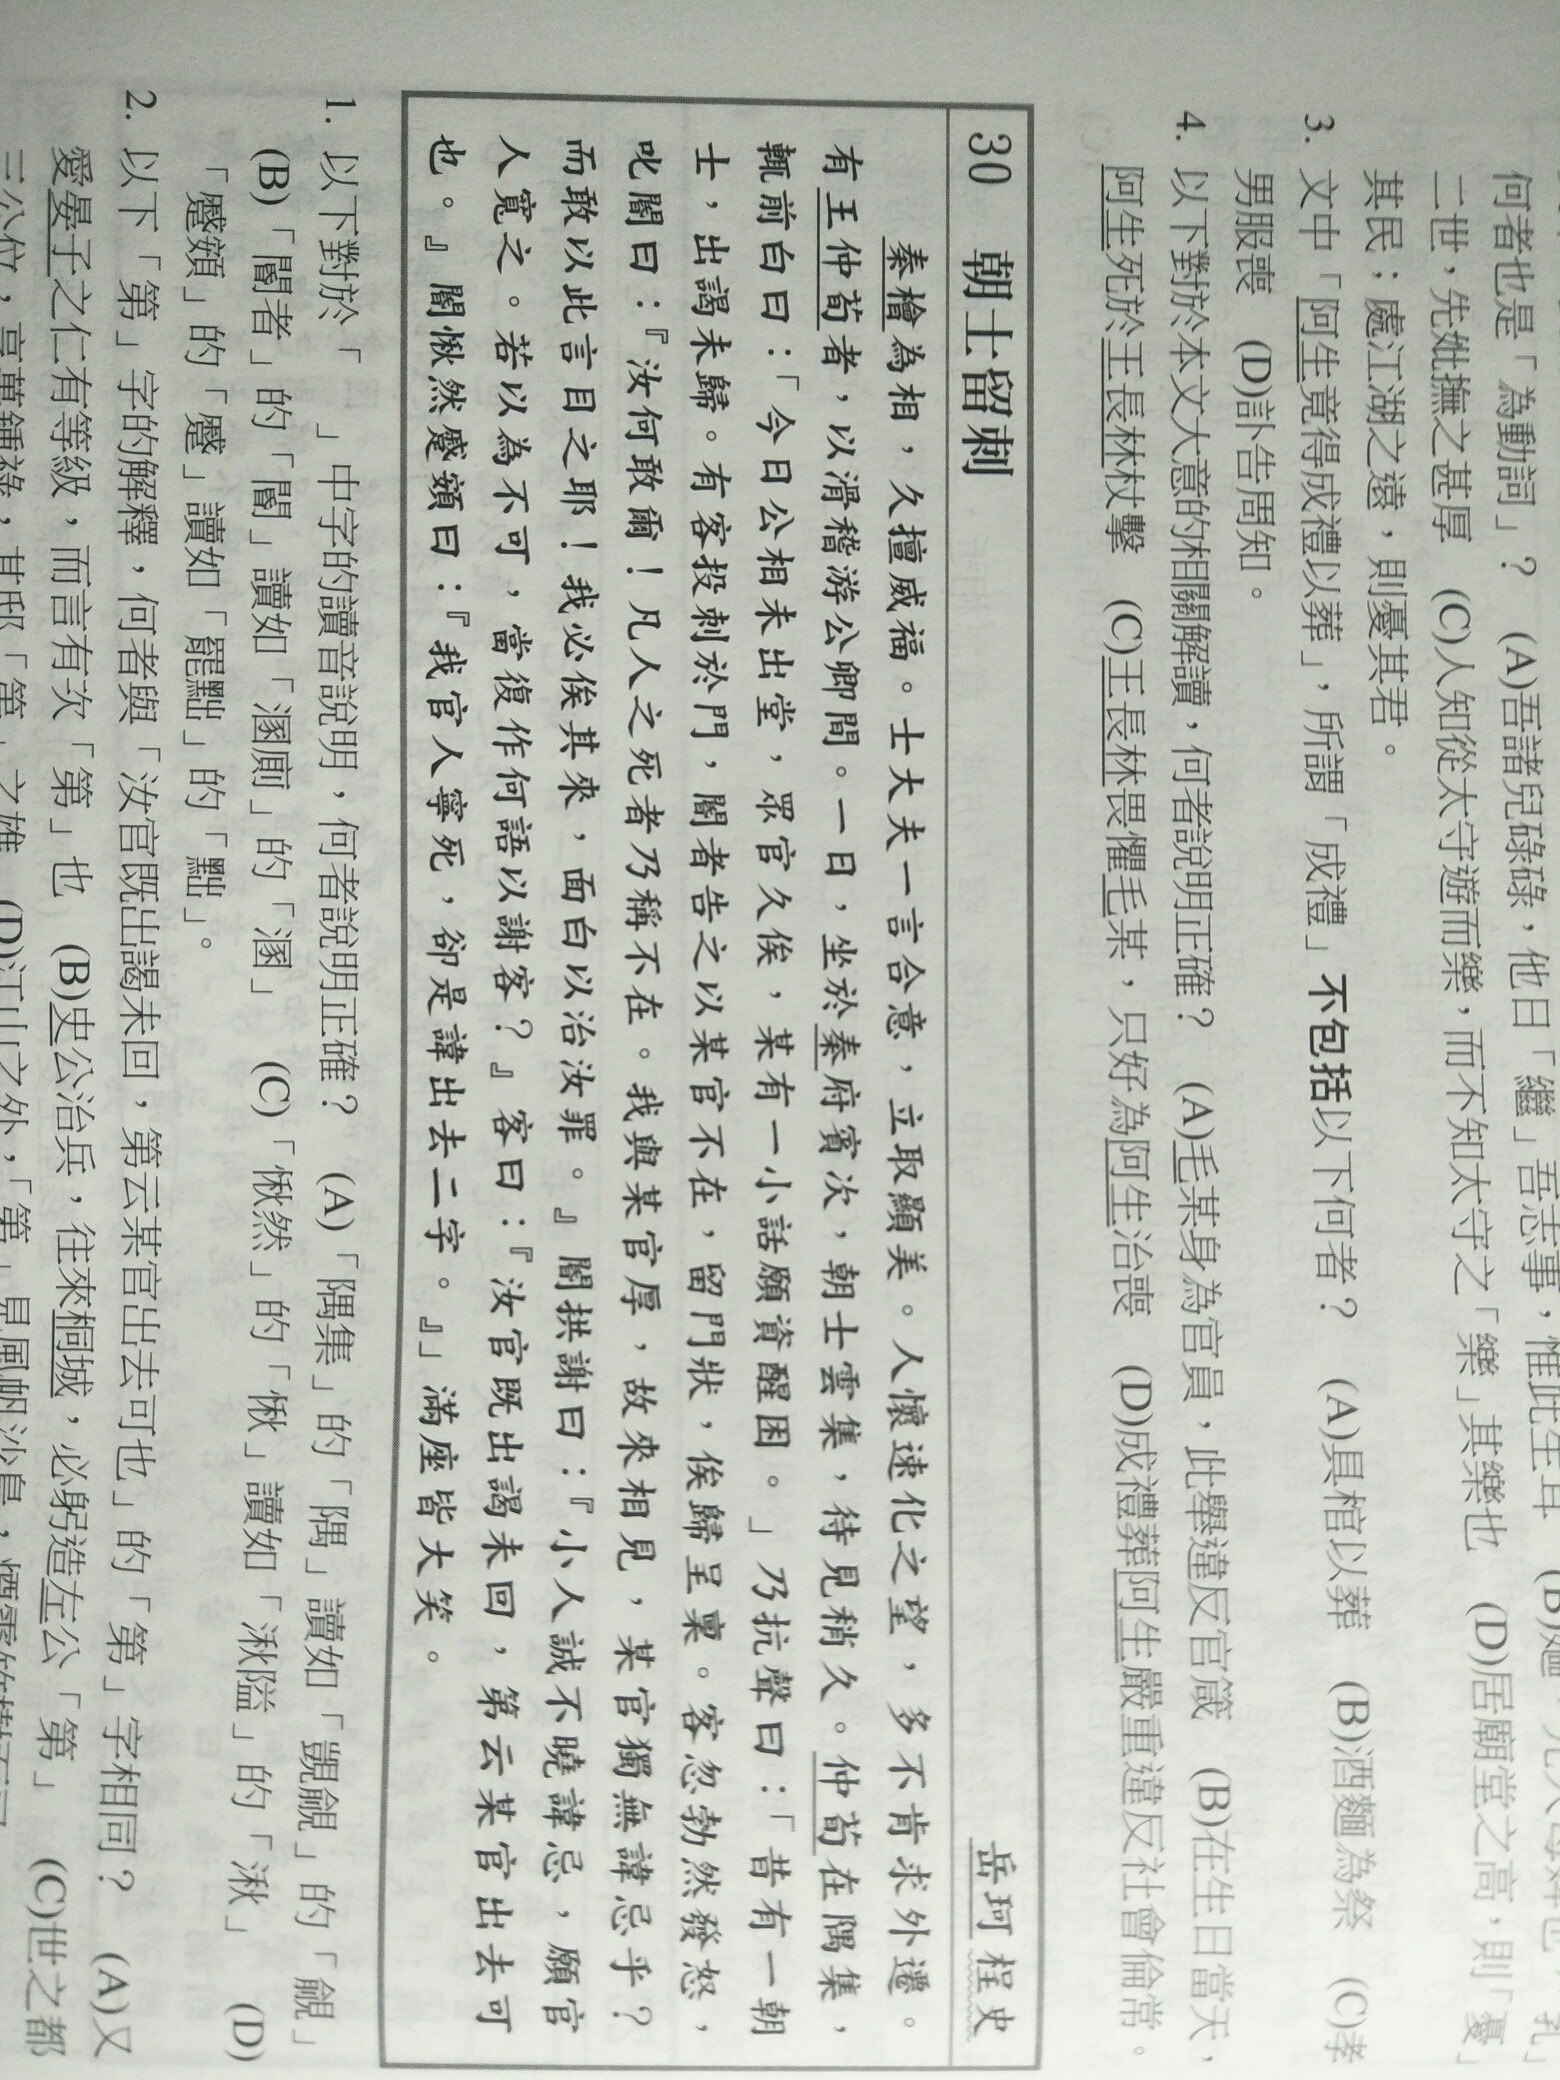 何者也是「為動詞」？ (A)吾諸兒碌碌，他日「繼」吾志事，惟此生耳
二世，先妣撫之甚厚 (C)人知從太守遊而樂，而不知太守之「樂」其樂也 (D)居廟堂之高，則「憂」
其民；處江湖之遠，則憂其君。
3. 文中「阿生竟得成禮以葬」，所謂「成禮」不包括以下何者？ (A)具棺以葬 (B)酒麵為祭 (C)孝
男服喪 (D)訃告周知。
4. 以下對於本文大意的相關解讀，何者說明正確？ (A)毛某身為官員，此舉違反官箴 (B)在生日當天，
阿生死於王長林杖擊 (C)王長林畏懼毛某，只好為阿生治喪 (D)成禮葬阿生嚴重違反社會倫常。
30 朝士留刺 岳珂 桯史
秦檜為相，久擅威福。士大夫一言合意，立取顯美。人懷速化之望，多不肯求外遷。
有王仲荀者，以滑稽游公卿間。一日，坐於秦府賓次，朝士雲集，待見稍久。仲荀在隅集，
輒前白曰：「今日公相未出堂，眾官久俟，某有一小話願資醒困。」乃抗聲曰：「昔有一朝
士，出謁未歸。有客投刺於門，閽者告之以某官不在，留門狀，俟歸呈稟。客忽勃然發怒，
叱閽曰：『汝何敢爾！凡人之死者乃稱不在。我與某官厚，故來相見，某官獨無諱忌乎？
而敢以此言目之耶！我必俟其來，面白以治汝罪。』閽拱謝曰：『小人誠不曉諱忌，願官
人寬之。若以為不可，當復作何語以謝客？』客曰：『汝官既出謁未回，第云某官出去可
也。』閽愀然蹙頞曰：『我官人寧死，卻是諱出去二字。』」滿座皆大笑。
1. 以下對於「 」中字的讀音說明，何者說明正確？ (A)「隅集」的「隅」讀如「覬覦」的「覦」
(B)「閽者」的「閽」讀如「溷廁」的「溷」 (C)「愀然」的「愀」讀如「湫隘」的「湫」 (D)
「蹙頞」的「蹙」讀如「罷黜」的「黜」。
2. 以下「第」字的解釋，何者與「汝官既出謁未回，第云某官出去可也」的「第」字相同？ (A)又
愛晏子之仁有等級，而言有次「第」也 (B)史公治兵，往來桐城，必躬造左公「第」 (C)世之都
三公位，享萬鍾祿，其邸「第」之雄 (D)江山之外，「第」見風帆沙鳥，煙雲竹樹而已